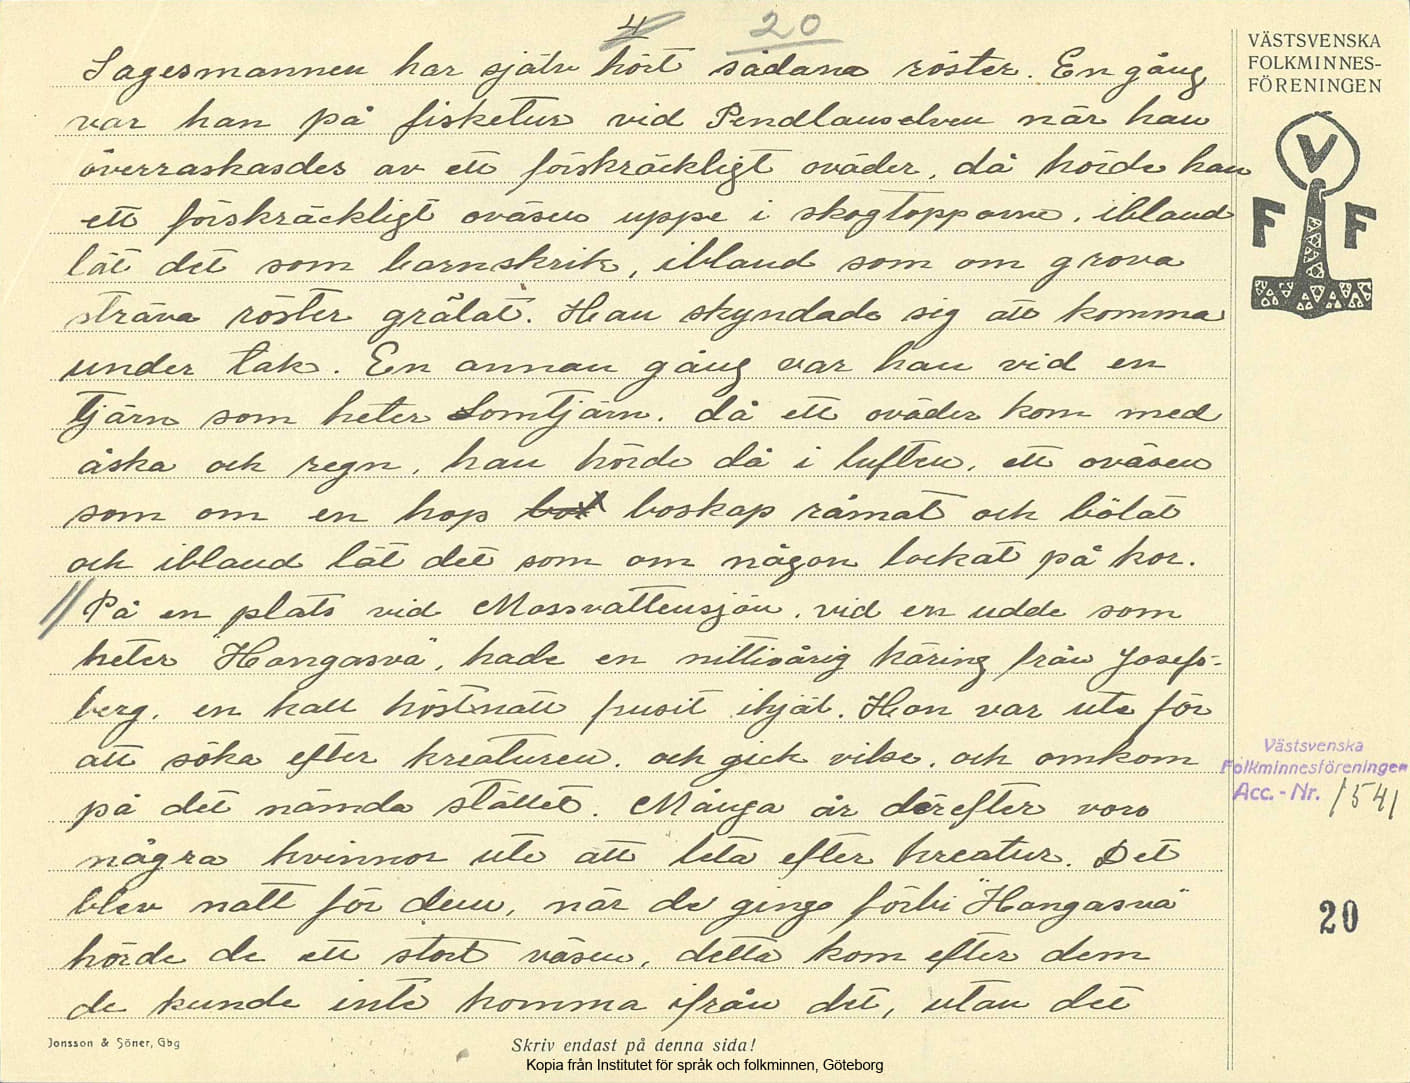 4 20
Sagesmannen har själv hört sådana röster. En gång
var han på fisketur vid Pendlauselven när han
överraskasdes av ett förskräckligt oväder, då hörde han
ett förskräckligt oväsen uppe i skogtopparne, ibland
lät det som barnskrik, ibland som om grova
sträva röster grälat. Han skyndade sig att komma
under tak. En annan gång var han vid en
tjärn som heter Lomtjärn, då ett oväder kom med
åska och regn, han hörde då i luften, ett oväsen
som om en hop boskap råmat och bölat
och ibland lät det som om någon lockat på kor.
// På en plats vid Mossvattensjön, vid en udde som
heter "Hangasvä", hade en nittioårig käring från Josefs-
berg, en kall höstnatt frusit ihjäl. Hon var ute för
att söka efter kreaturen, och gick vilse, och omkom
på det nämda stället. Många år därefter voro
några kvinnor ute att leta efter kreatur. Det
blev natt för dem, när de gingo förbi "Hangasvä"
hörde de ett stort väsen, detta kom efter dem
de kunde inte komma ifrån det, utan det
VÄSTSVENSKA
FOLKMINNES-
FÖRENINGEN
V
F F
Västsvenska
Folkminnesföreningen
Acc.-Nr. 1541
20
Jonsson & Söner, Gbg
Skriv endast på denna sida!
Kopia från Institutet för språk och folkminnen, Göteborg